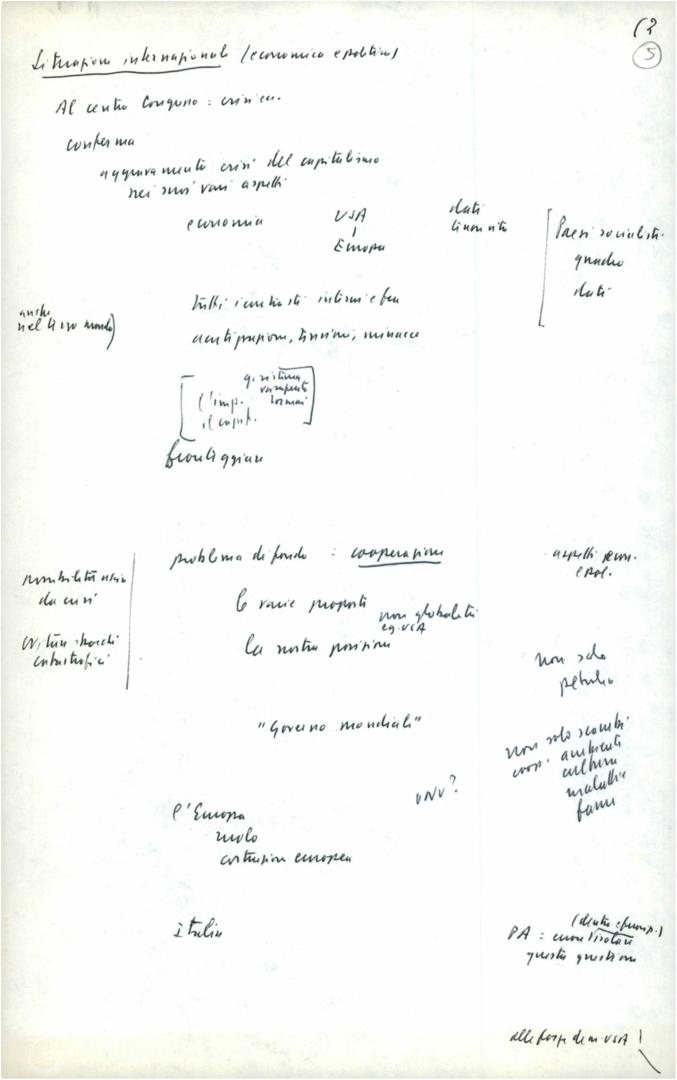 5
Situazione internazionale (economica e politica)
Al centro Congresso: crisi ec.
conferma
aggravamento crisi del capitalismo
nei suoi vari aspetti
economia USA dati
Europa
Paesi socialisti
quadro
dati
anche
nel terzo mondo)
tutti i contrasti interni e fra
acutizzazioni, tensioni, minacce
l'imp.
il capit.
fronteggiare
problema di fondo : cooperazione
aspetti econ.
e pol.
possibilità
da crisi
evitare sbocchi
catastrofici
le varie proposte
non globalità
eg. USA
la nostra posizione
non solo
petrolio
"Governo mondiale"
non solo scambi
coop. ambiente
cultura
malattie
fame
ONU?
l'Europa
ruolo
costruzione europea
Italia
PA :
queste questioni
alle forze dem. USA!